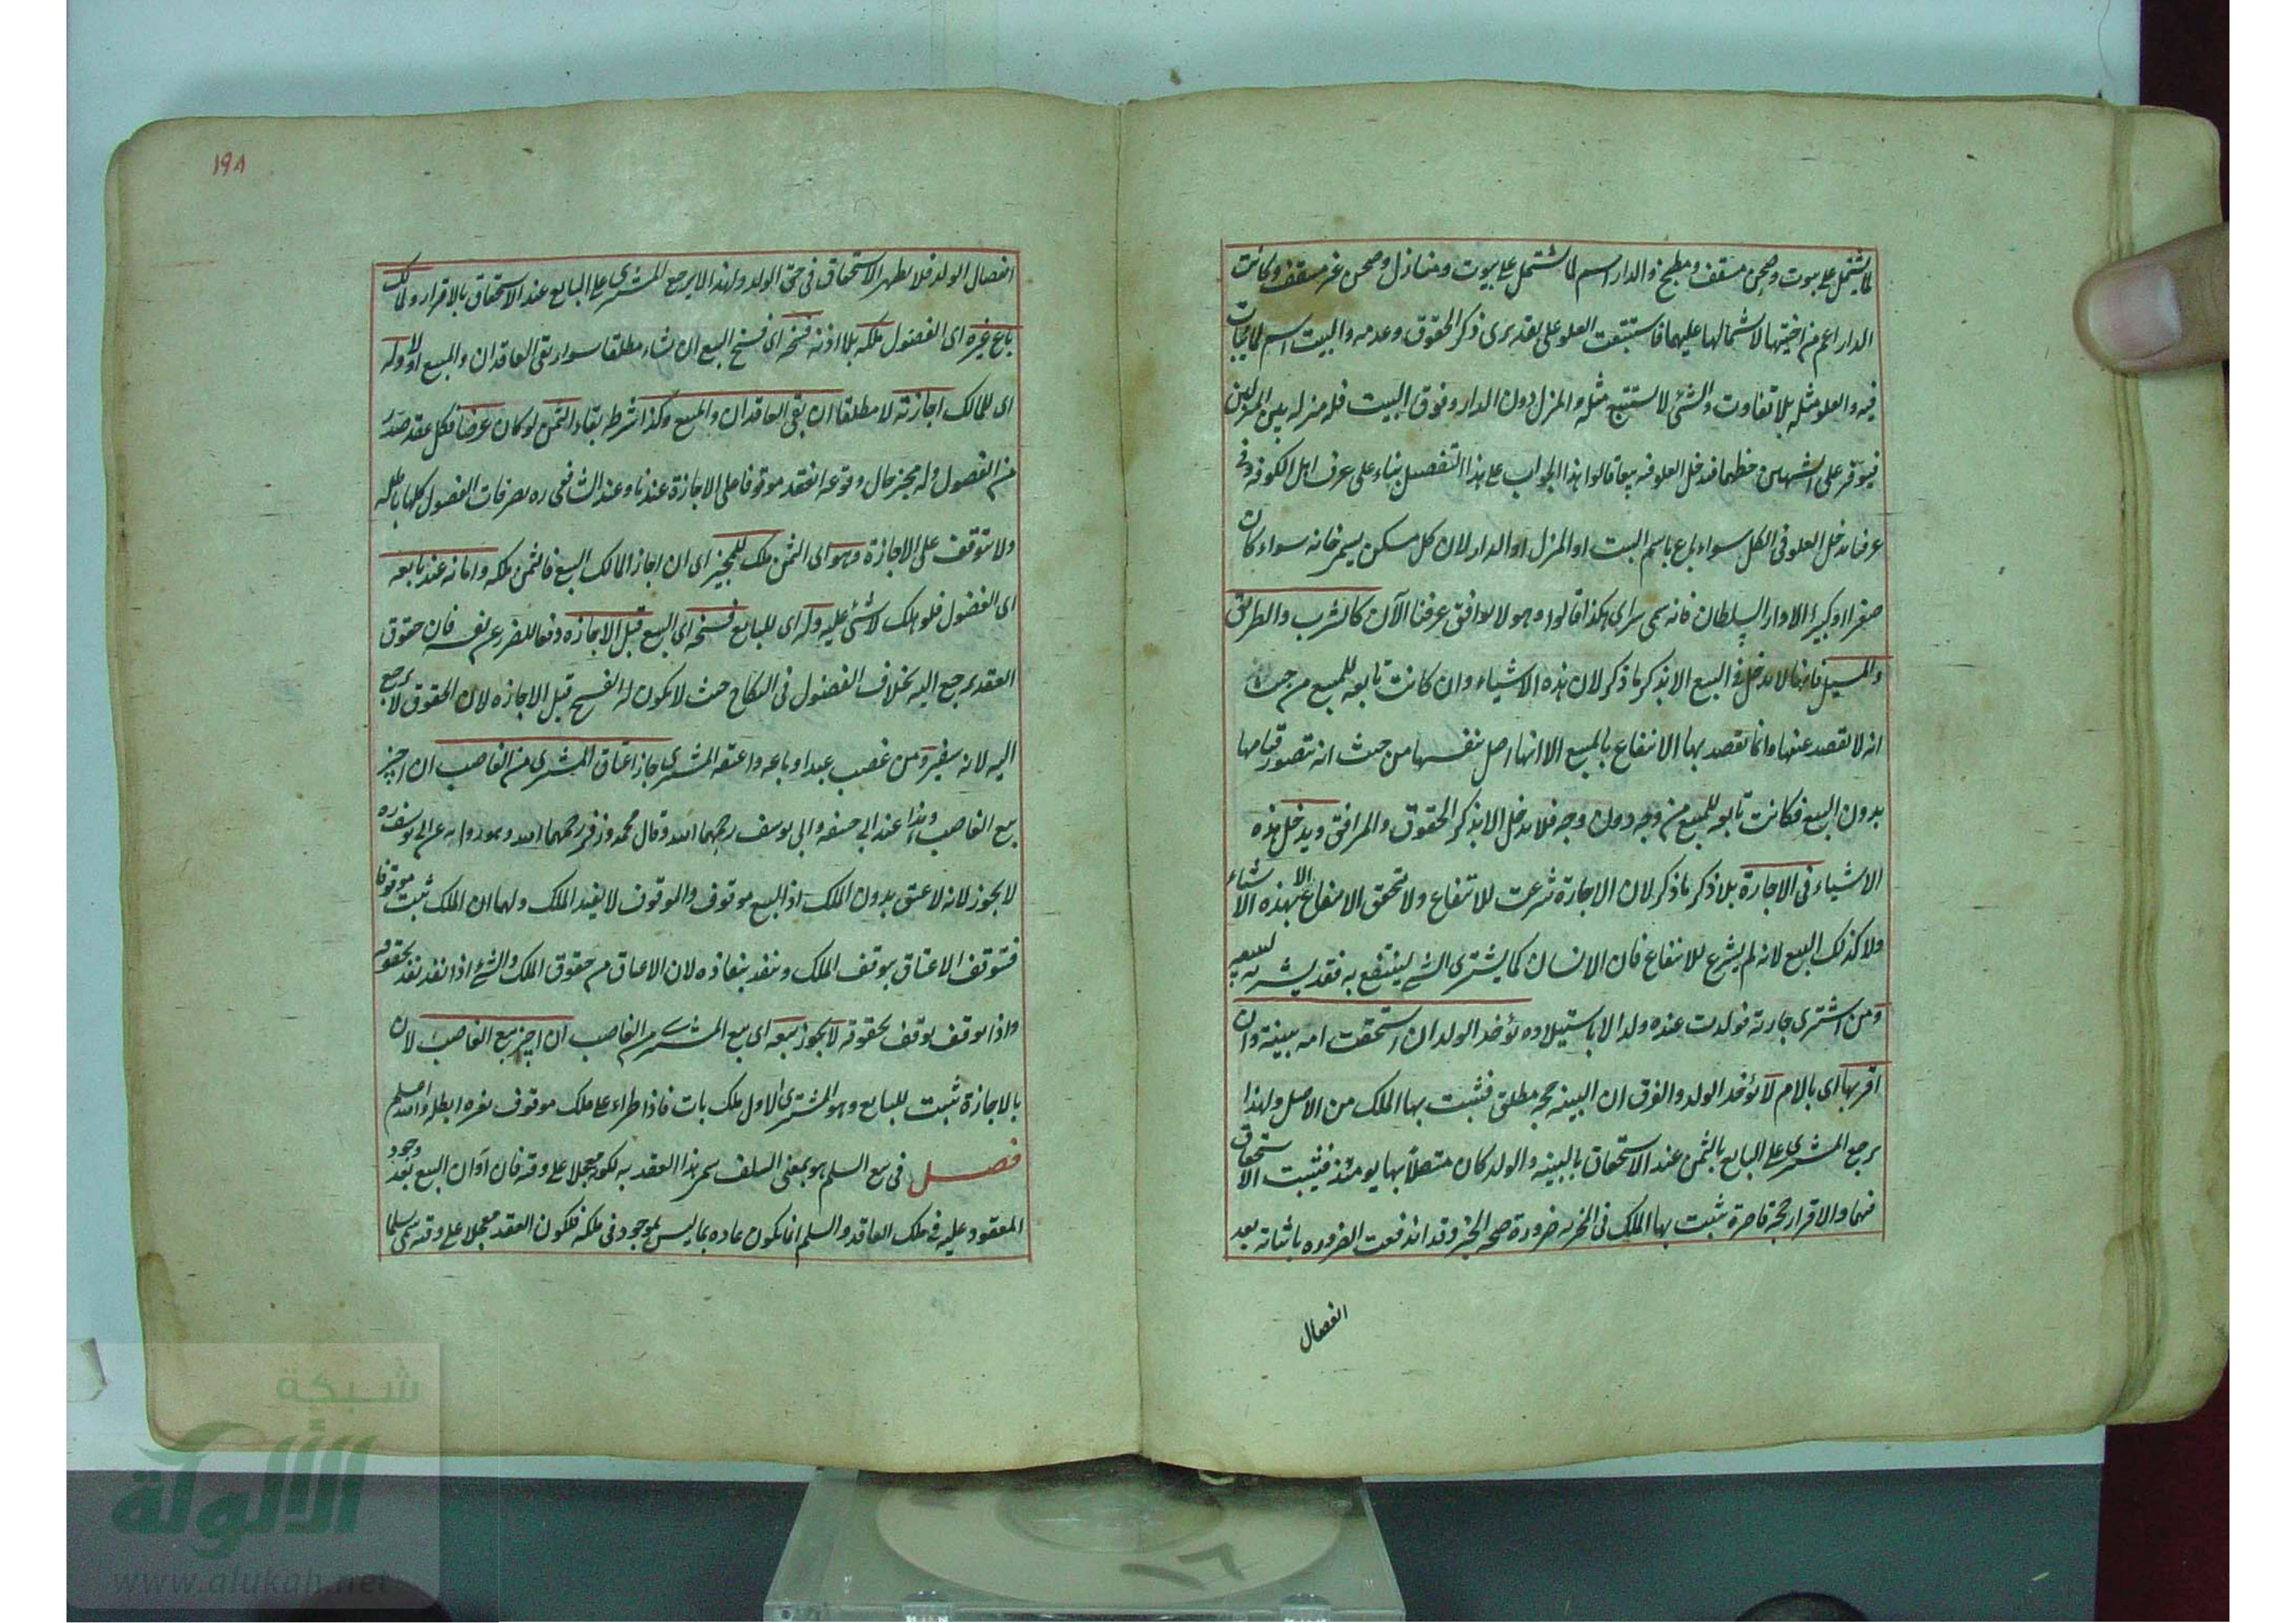 لما يشتمل على بيوت وصحن مسقف ومطبخ والدار اسم لما يشتمل على بيوت ومنازل وصحن غير مسقف وكانت
الدار اعم من اختيها لاشتمالها عليهما فاستتبعت العلو على تقديرى ذكر الحقوق وعدمه والبيت اسم لما يبات
فيه والعلو مثله بلا تفاوت والشئ لا يستتبع مثله والمنزل دون الدار وفوق البيت فله منزلة بين المنزلين
فيوفر على الشبهين حظهما فدخل العلو فيه تبعا قالوا هذا الجواب على هذا التفصيل بناء على عرف اهل الكوفه وفى
عرفنا يدخل العلو فى الكل سواء باع باسم البيت او المنزل او الدار لان كل مسكن يسمى خانه سواء كان
صغيرا او كبيرا الا دار السلطان فانه يسمى سراى هكذا قالوا وهو لا يوافق عرفنا الآن كالشرب والطريق
والمسيل فانها لا تدخل فى البيع الا بذكر ما ذكر لان هذه الاشياء وان كانت تابعه للمبيع من حيث
انه لا يقصد عنها وانما يقصد بها الانتفاع بالمبيع الا انها اصل بنفسها من حيث انه يتصور قيامها
بدون المبيع فكانت تابعه للمبيع من وجه دون وجه فلا تدخل الا بذكر الحقوق والمرافق ويدخل هذه
الاشياء فى الاجارة بلا ذكر ما ذكر لان الاجارة شرعت للانتفاع ولا يتحقق الانتفاع الا بهذه الاشياء
ولا كذلك البيع لانه لم يشرع للانتفاع فان الانسان كما يشترى الشئ لينتفع به فقد يشتريه ليبيعه
ومن اشترى جارية فولدت عنده ولدا لا باستيلاده يؤخذ الولد ان استحقت امه ببينة وان
اقر بها اى بالام لا يؤخذ الولد والفرق ان البينه حجه مطلق فثبت بها الملك من الاصل ولهذا
يرجع المشترى على البايع بالثمن عند الاستحقاق بالبينه والولد كان متصلا بها يومئذ فيثبت الاستحقاق
فيهما والاقرار حجة قاصرة يثبت بها الملك فى المخبر به ضرورة صحه الخبر وقد اندفعت الضروره باثباته بعد
انفصال
١٩٨
انفصال الولد فلا يظهر الاستحقاق فى حق الولد ولهذا لا يرجع المشترى على البايع عند الاستحقاق بالاقرار ولمالك
باع غيره اى الفضول ملكه بلا اذنه فسخه اى فسخ البيع ان شاء مطلقا سواء بقى العاقدان والمبيع او لا وله
اى للمالك اجازته لا مطلقا ان بقى العاقدان والمبيع وكذا شرط بقاء الثمن لو كان عرضا فكل عقد صدر
من الفضول وله مجيز حال وقوعه انعقد موقوفا على الاجازة عندنا وعند الشافعى ره تصرفات الفضول كلها باطله
ولا يتوقف على الاجازة وهو اى الثمن ملك للمجيز اى ان اجاز المالك البيع فالثمن ملكه وامانه عند بايعه
اى الفضول فلو هلك لا شئ عليه وله اى للبايع فسخه اى البيع قبل الاجازه دفعا للضرر عن نفسه فان حقوق
العقد يرجع اليه بخلاف الفضول فى النكاح حيث لا يكون له الفسخ قبل الاجازه لان الحقوق لا يرجع
اليه لانه سفير ومن غصب عبدا وباعه واعتقه المشترى جاز اعتاق المشترى من الغاصب ان اجيز
بيع الغاصب وهذا عند ابى حنيفه وابى يوسف رحمهما الله وقال محمد وزفر رحمهما الله وهو رواية عن ابى يوسف ره
لا يجوز لانه لا عتق بدون الملك اذ البيع موقوف والموقوف لا يفيد الملك ولهما ان الملك ثبت موقوفا
فيتوقف الاعتاق بتوقف الملك وينفذ بنفاذه لان الاعتاق من حقوق الملك والشئ اذا نفذ نفذ بحقوقه
واذا توقف توقف بحقوقه لا يجوز بيعه اى بيع المشترى من الغاصب ان اجيز بيع الغاصب لان
بالاجازة يثبت للبايع وهو المشترى الاول ملك بات فاذا طراء على ملك موقوف لغيره ابطله والله اعلم
فصل فى بيع السلم هو بمعنى السلف سمى هذا العقد به لكونه معجلا على وقته فان آوان البيع بعد وجود
المعقود عليه فى ملك العاقد والسلم انما يكون عاده بما ليس بموجود فى ملكه فيكون العقد معجلا على وقته سمى سلما
شبكة
الألوكة
www.alukah.net